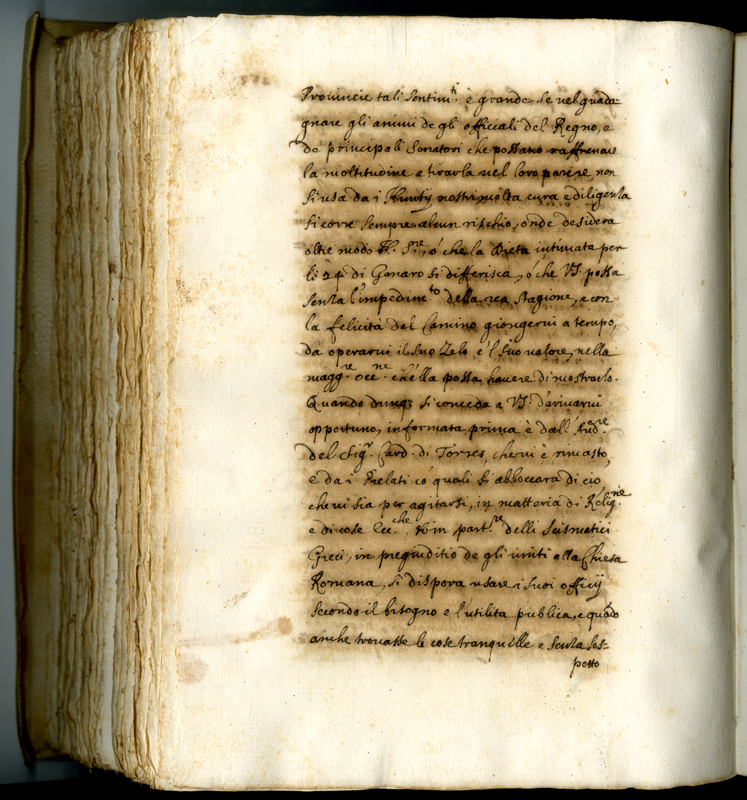 Prouincie tali sentim.ti è grande, se nel guada
gnare gli animi de gli officiali del Regno, e
de principali Senatori che possano raffrenare
la moltitudine e tirarla nel loro parere, non
si usa da i Nuntij nostri molta cura e diligenza
si corre sempre alcun rischio, onde desidera
oltre modo N. S.re, ó che la Dieta intimata per
li 24 di Genaro si differisca, ó che VS. possa
senza l'impedim.to della rea stagione, e con
la felicità del Camino giongerui a tempo,
da operarui il suo Zelo e 'l suo ualore, nella
magg.re occ.ne ch'ella possa hauere di mostrarlo.
Quando dunq; si conceda a VS. d'ariuarui
opportuno, informata prima è dall' Aud.re
del Sig.r Card. di Torres, che ui è rimasto,
e da i Prelati có quali si abboccara di ció
che ui sia per agitarsi, in matteria di Relig.ne
e di cose Ecc.che, et in part.re delli Scismatici
Greci, in pregiuditio de gli uniti alla Chiesa
Romana, si dispora usare i suoi officij
secondo il bisogno e l'utilita publica, e quãdo
anche trouasse le cose tranquille e senza sos-
petto